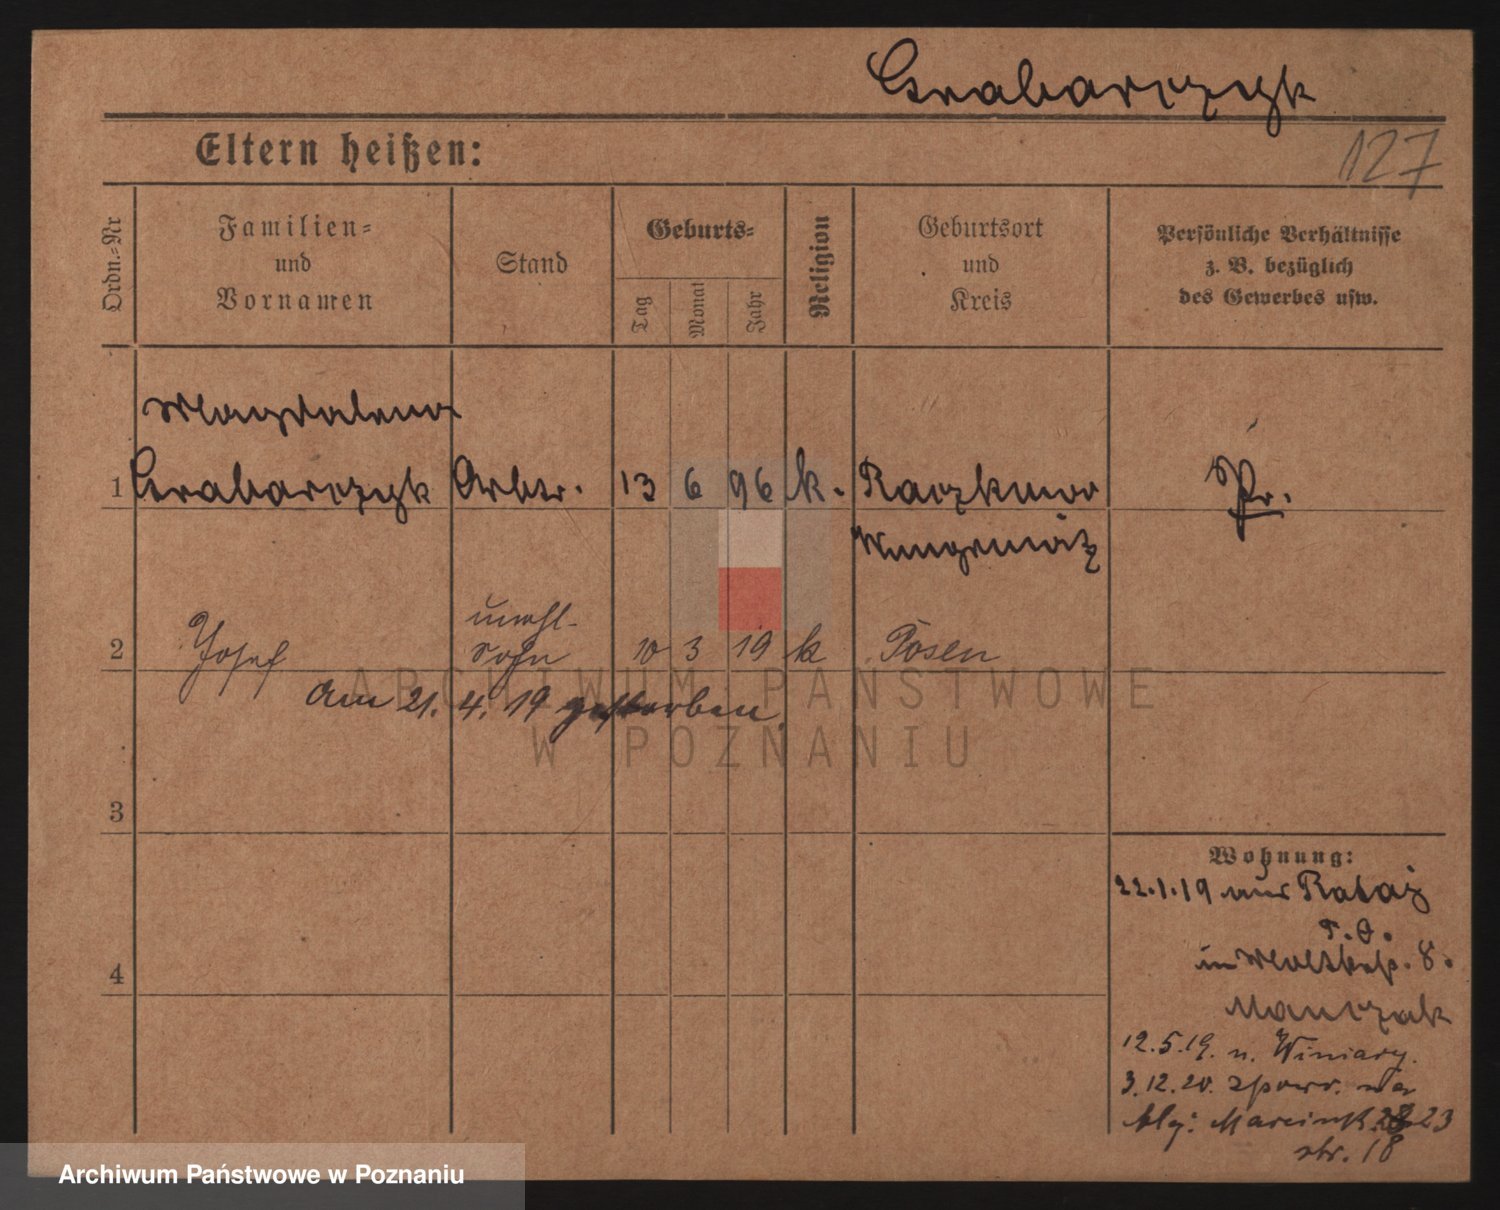 Grabarczyk
127
Eltern heißen:
Ordn.-Nr
Familien-
und
Vornamen
Stand
Geburts-
Tag
Monat
Jahr
Religion
Geburtsort
und
Kreis
Persönliche Verhältnisse
z. B. bezüglich
des Gewerbes usw.
Magdalena
1 Grabarczyk Arbtr. 13 6 96 k. Raczkowo Pr.
Wongrowitz
unehl.
2 Josef Sohn 10 3 19 k Posen
am 21. 4. 19 gestorben.
3
4
Wohnung:
22.1.19 aus
in 8.
Marczak
12.5.19. n. Winiary.
3.12.20. zpowr.
Marcink. 23
str. 18
ARCHIWUM PAŃSTWOWE
W POZNANIU
Archiwum Państwowe w Poznaniu